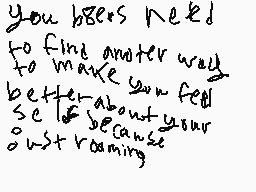 you b8ers need
to find anoter way
to make you feel
better about your
self because
8 ust roaming